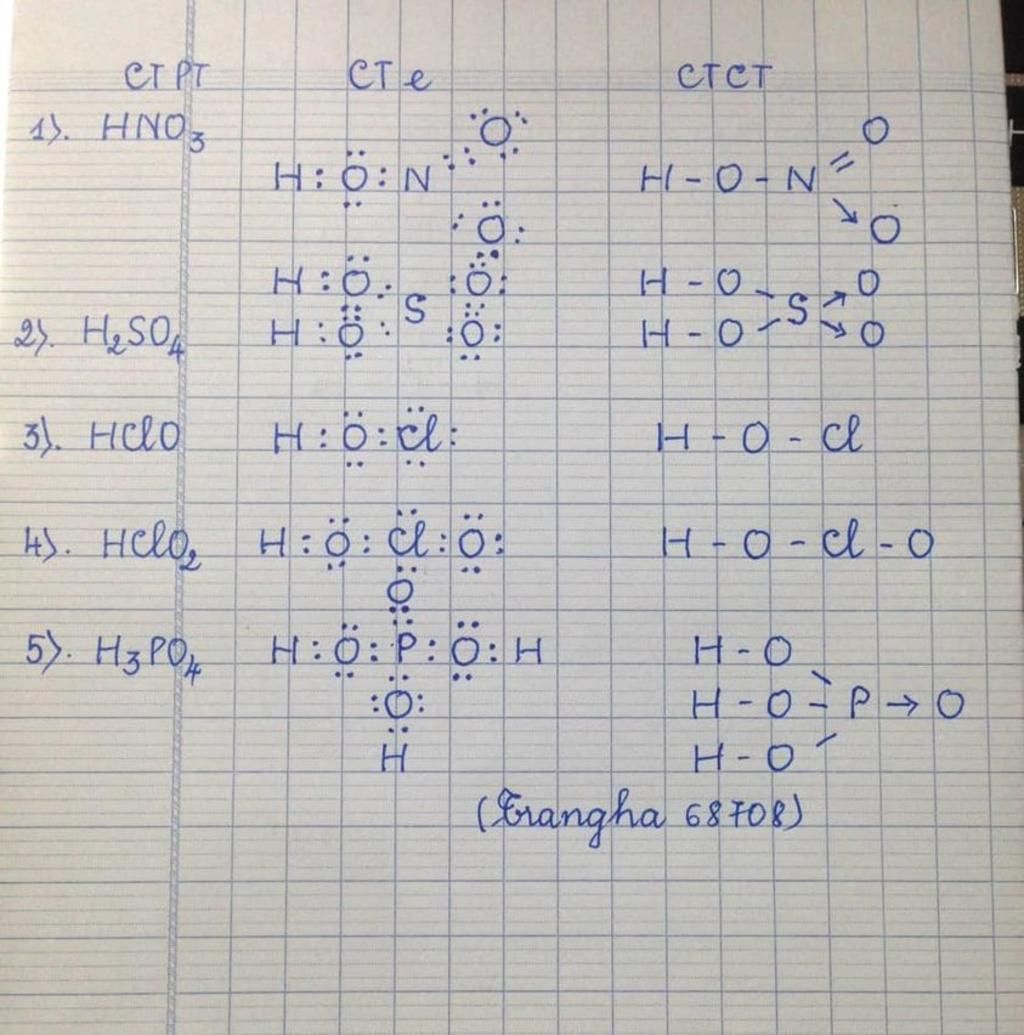 CTPT CTe CTCT
1). HNO₃ H:Ö:N::Ö: :Ö: H-O-N=O →O
2). H₂SO₄ H:Ö: H:Ö: S :Ö: :Ö: H-O- H-O- S →O →O
3). HClO H:Ö:Cl: H-O-Cl
4). HClO₂ H:Ö:Cl:Ö: H-O-Cl-O
5). H₃PO₄ :Ö: H:Ö:P:Ö:H :O: H H-O H-O-P→O H-O
(Trangha 68708)